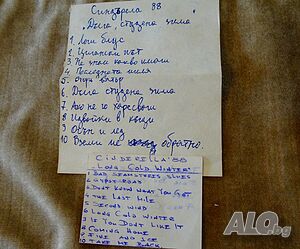 Синдерела 88
„Дълга, студена зима"
1 Лош блус
2 Цигански път
3 Не знам какво имаш
4 Последната миля
5 Втори вятър
6 Дълга студена зима
7 Ако не го харесваш
8 Идвайки в къщи
9 Огън и лед
10 Вземи ме обратно.
CINDERELLA '88
"LONG COLD WINTER"
1 BAD SEAMSTERES BLUES
2 GYPSY ROAD
3 DONT KNOW WHAT YOU GOT
4 THE LAST MILE
5 SECOND WIND
6 LONG COLD WINTER
7 IF YOU DONT LIKE IT
8 COMING HOME
9 FIRE AND ICE
10 TAKE ME BACK
ALO.BG